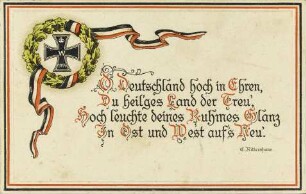 O Deutschland hoch in Ehren,
Du heil'ges Land der Treu',
Hoch leuchte deines Ruhmes Glanz
In Ost und West aufs Neu'.